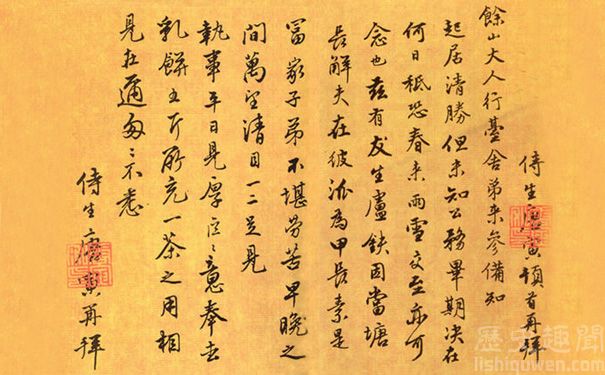 侍生唐寅頓首再拜
餘山大人行臺舍弟來參備知
起居清勝但未知公務畢期決在
何日秪恐春來雨雪交至亦可
念也茲有友生盧鉄因當塘
長解夫在彼派為甲長素是
冨家子弟不堪勞苦早晚之
間萬望清目一二足見
執事平日見厚區〻意奉去
乳餅五斤所充一茶之用相
見在邇匆〻不悉
侍生唐寅再拜
歷史趣聞
lishiquwen.com